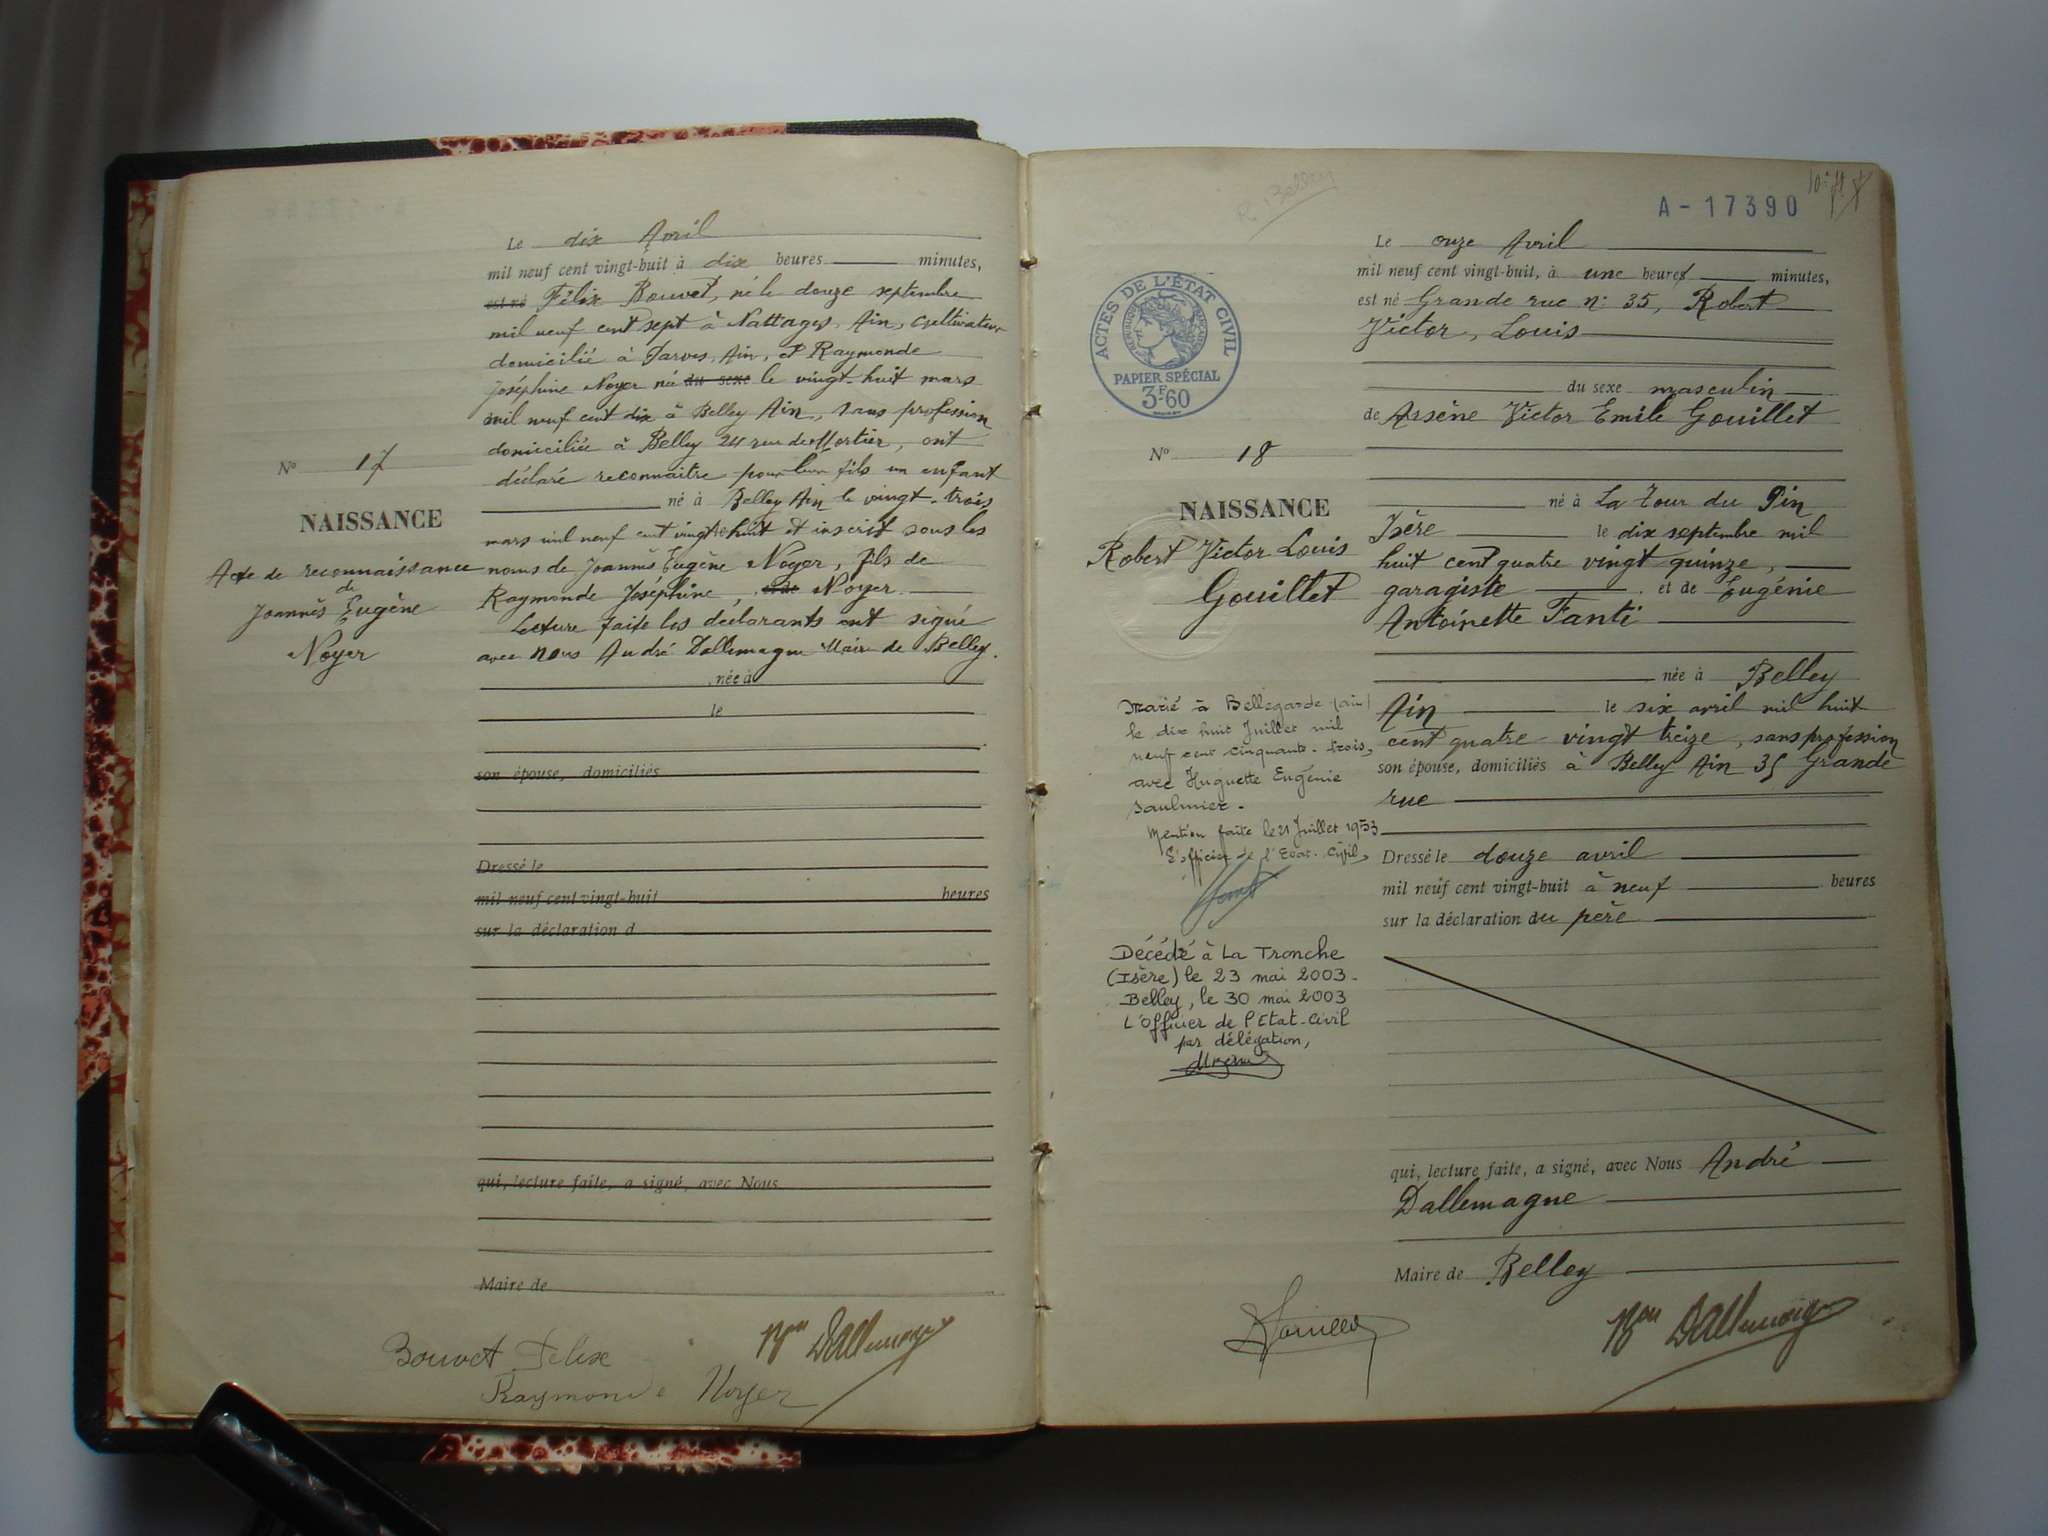 Le dix Avril
mil neuf cent vingt-huit à dix heures minutes,
est né Félix Bouvet, né le douze septembre
mil neuf cent sept à Nattages, Ain, cultivateur
domicilié à Parves, Ain, et Raymonde
Joséphine Noyer née du sexe le vingt-huit mars
mil neuf cent dix à Belley Ain, sans profession
domiciliée à Belley 24 rue du Mortier, ont
déclaré reconnaitre pour leur fils un enfant
né à Belley Ain le vingt-trois
mars mil neuf cent vingt huit et inscrit sous les
noms de Joannès Eugène Noyer, fils de
Raymonde Joséphine, et de Noyer.
Lecture faite les déclarants ont signé
avec nous André Dallemagne Maire de Belley.
née à
le
son épouse, domiciliés
Dressé le
mil neuf cent vingt-huit heures
sur la déclaration d
qui, lecture faite, a signé, avec Nous
Maire de
N° 17
NAISSANCE
Acte de reconnaissance
de
Joannès Eugène
Noyer
Bouvet Félix
Raymonde Noyer
Bon Dallemagne
R. Belley
A-17390
ACTES DE L'ÉTAT CIVIL
RÉPUBLIQUE FRANÇAISE
PAPIER SPÉCIAL
3F60
N° 18
NAISSANCE
Robert Victor Louis
Gouillet
Marié à Bellegarde (ain)
le dix huit Juillet mil
neuf cent cinquante-trois,
avec Huguette Eugénie
Saulnier.
Mention faite le 21 Juillet 1953
L'officier de l'Etat-Civil,
Décédé à La Tronche
(Isère) le 23 mai 2003.
Belley, le 30 mai 2003
L'Officier de l'Etat-Civil
par délégation,
Le onze Avril
mil neuf cent vingt-huit, à une heures minutes,
est né Grande rue n: 35, Robert
Victor, Louis
du sexe masculin
de Arsène Victor Emile Gouillet
né à La Tour du Pin
Isère le dix septembre mil
huit cent quatre vingt quinze,
garagiste et de Eugénie
Antoinette Fanti
née à Belley
Ain le six avril mil huit
cent quatre-vingt treize, sans profession
son épouse, domiciliés à Belley Ain 35 Grande
rue
Dressé le douze avril
mil neuf cent vingt-huit à neuf heures
sur la déclaration du père
qui, lecture faite, a signé, avec Nous André
Dallemagne
Maire de Belley
Bon Dallemagne